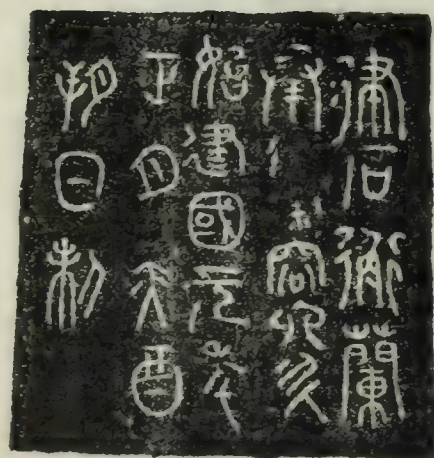 律石衡蘭
承容六升
始建國元年
正月癸酉
朔日制